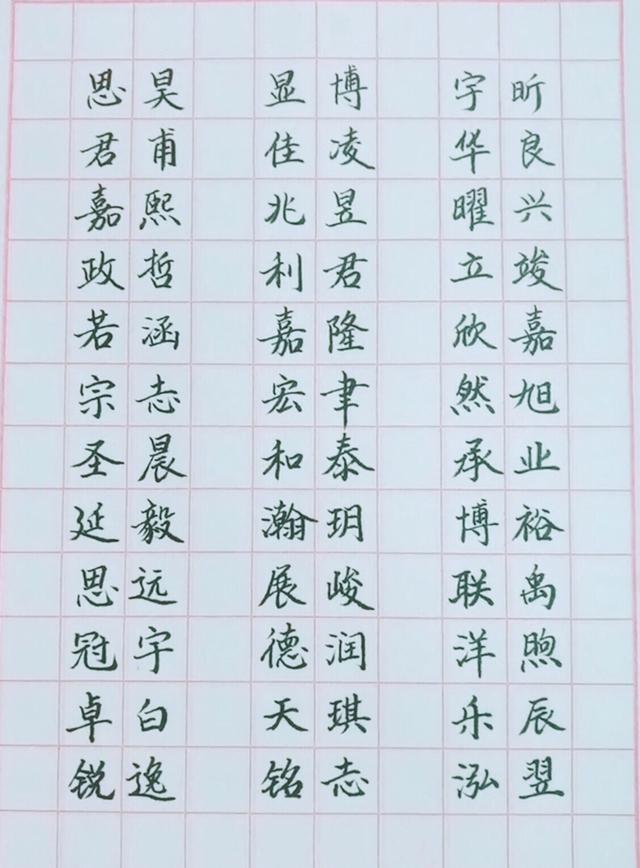 思昊 显博 宇昕
君甫 佳凌 华良
嘉熙 兆昱 曜兴
政哲 利君 立竣
若涵 嘉隆 欣嘉
宗志 宏聿 然旭
圣晨 和泰 承业
延毅 瀚玥 博裕
思远 展峻 联禹
冠宇 德润 洋煦
卓白 天琪 乐辰
锐逸 铭志 泓翌